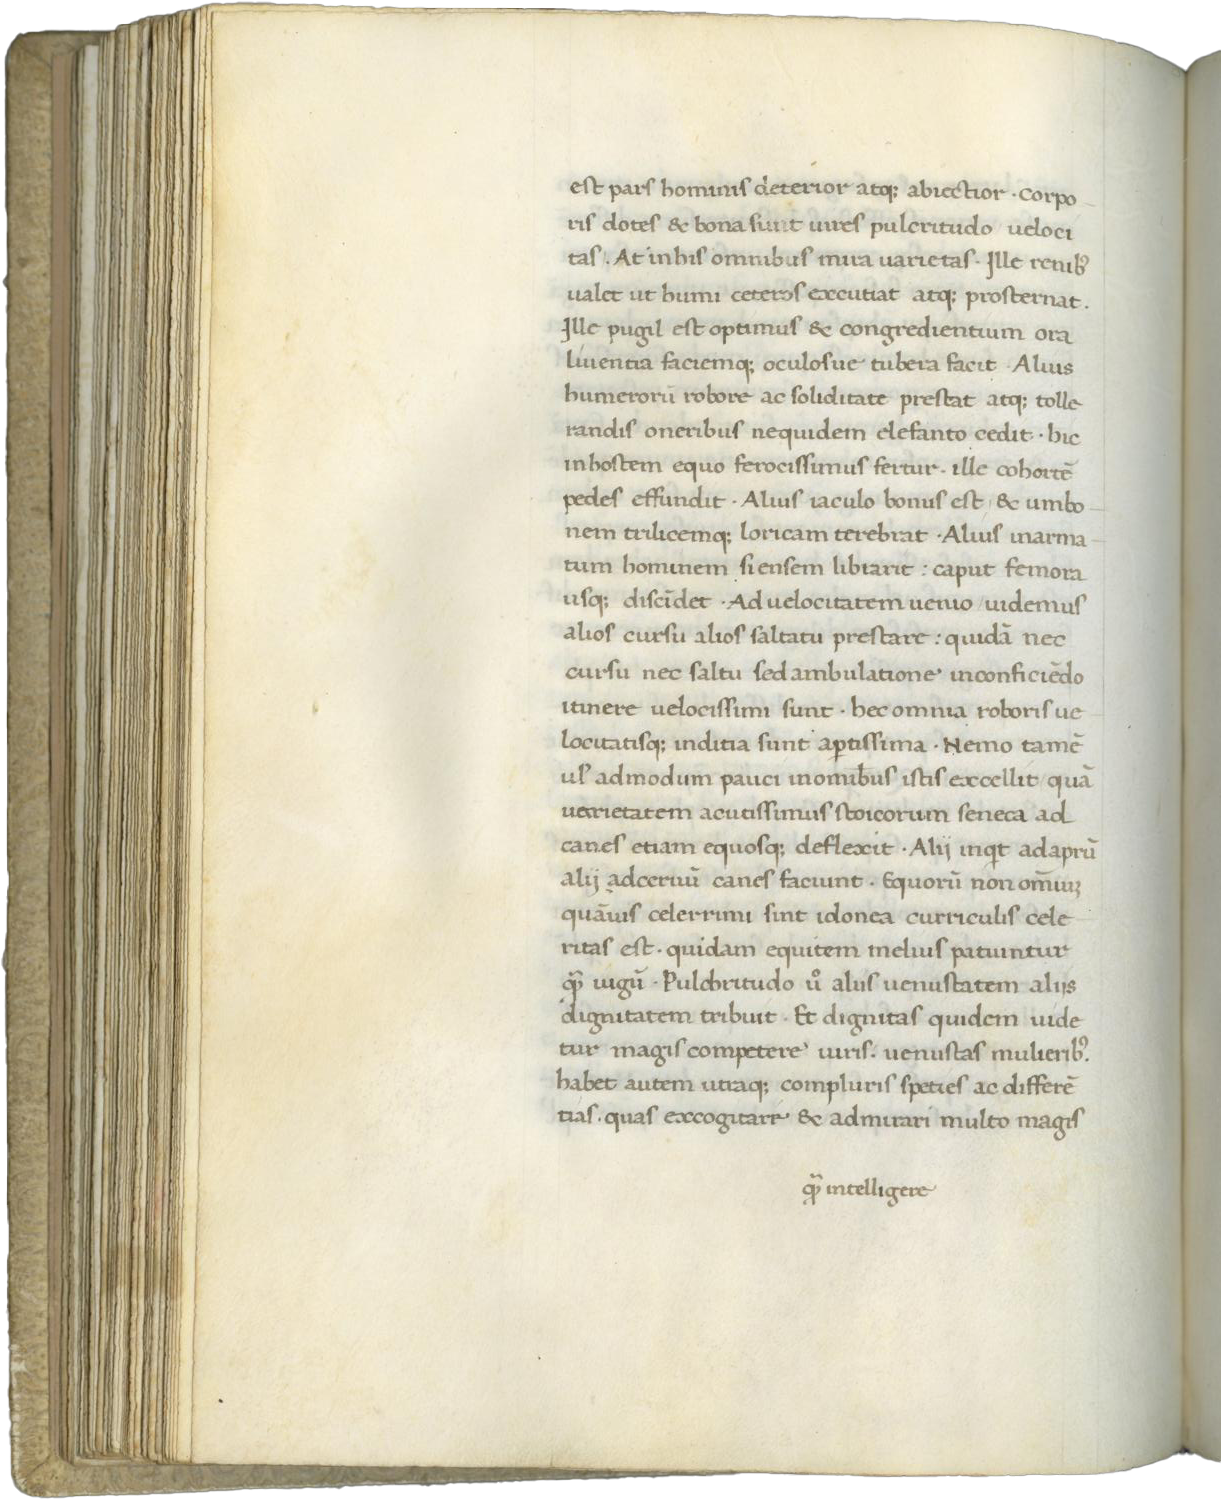 est pars hominis deterior atq; abiectior · Corpo
ris dotes & bona sunt uires pulcritudo ueloci
tas . At in his omnibus mira uarietas · Ille renibꝰ
ualet ut humi ceteros excutiat atq; prosternat .
Ille pugil est optimus & congredientium ora
liuentia faciemq; oculosue tubera facit · Alius
humerorū robore ac soliditate prestat atq; tolle
randis oneribus nequidem elefanto cedit · hic
in hostem equo ferocissimus fertur · ille cohortē
pedes effundit · Alius iaculo bonus est & umbo
nem trilicemq; loricam terebrat · Alius inarma
tum hominem si ensem librarit : caput femora
usq; discīdet · Ad uelocitatem uenio uidemus
alios cursu alios saltatu prestare : quidā nec
cursu nec saltu sed ambulatione in conficiēdo
itinere uelocissimi sunt · hec omnia roboris ue
locitatisq; inditia sunt aꝑtissima · Nemo tamē
ul' admodum pauci in omnibus istis excellit quā
uarietatem acutissimus stoicorum seneca ad
canes etiam equosq; deflexit · Alij inqt ad aprū
alij ad ceruū canes faciunt · Equorū non om̄iuꝫ
quāuis celerrimi sint idonea curriculis cele
ritas est · quidam equitem melius patiuntur
qᷓꝫ iugū · Pulchritudo uͦ aliis uenustatem aliis
dignitatem tribuit · Et dignitas quidem uide
tur magis competere uiris · uenustas mulieribꝰ.
habet autem utraq; compluris speties ac differē
tias . quas excogitare & admirari multo magis
qᷓꝫ intelligere